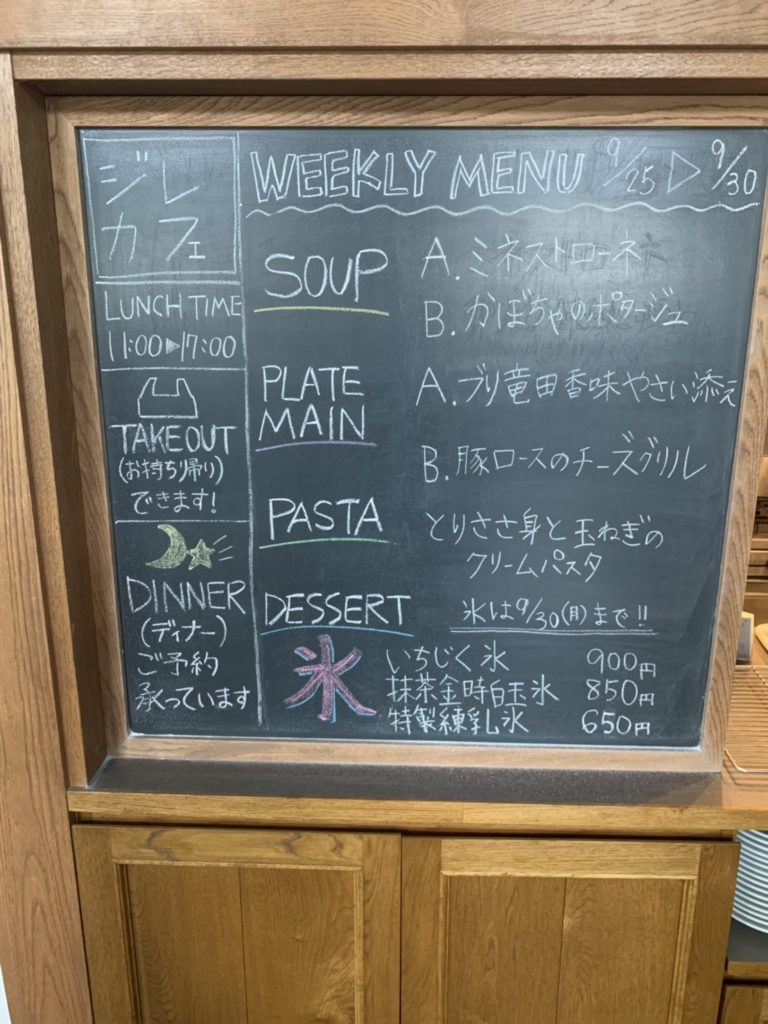 ジレ
カフェ
LUNCH TIME
11:00▶17:00
TAKEOUT
(お持ち帰り)
できます!
DINNER
(ディナー)
ご予約
承っています
WEEKLY MENU 9/25 ▷ 9/30
SOUP
A. ミネストローネ
B. かぼちゃのポタージュ
PLATE
MAIN
A. ブリ竜田香味やさい添え
B. 豚ロースのチーズグリル
PASTA
とりささ身と玉ねぎの
クリームパスタ
DESSERT
氷は9/30(月)まで!!
氷
いちじく氷 900円
抹茶金時白玉氷 850円
特製練乳氷 650円